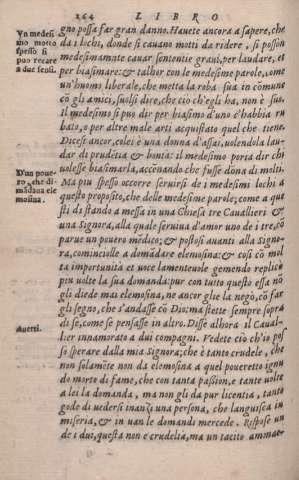 264 LIBRO
gno possa far gran danno. Hauete ancora a sapere, che
Vn medesi
mo motto
spesso si
può recare
a due sensi.
da i lochi, donde si cauano motti da ridere, si posson
medesimamẽte cauar sententie graui, per laudare, et
per biasimare: & talhor con le medesime parole, come
un'huomo liberale, che metta la roba sua in comune
cõ gli amici, suolsi dire, che ciò ch'egli ha, non è suo.
Il medesimo si può dir per biasimo d'uno c'habbia ru
bato, o per altre male arti acquistato quel che tiene.
Dicesi ancor, colei è una donna d'assai, uolendola lau-
dar di prudẽtia & bontà: il medesimo poria dir chi
uolesse biasimarla, accenando che fusse dõna di molti.
D'un poue-
ro, che di-
mãdaua ele
mosina.
Ma piu spesso occorre seruirsi de i medesimi lochi a
questo proposito, che delle medesime parole; come a que
sti dì stando a messa in una Chiesa tre Cauallieri &
una Signora, alla quale seruiua d'amor uno de i tre, cõ
parue un pouero mẽdico; & postosi auanti alla Signo-
ra, cominciolle a domãdare elemosina: & così cõ mol
ta importunità et uoce lamenteuole gemendo replicò
piu uolte la sua domanda: pur con tutto questo essa nõ
gli diede mai elemosina, ne ancor glie la negò, cõ far
gli segno, che s'andasse cõ Dio: ma stette sempre sopra
di se, come se pensasse in altro. Disse alhora il Caual-
Auerti.
lier innamorato a dui compagni. Vedete ciò ch'io pos
so sperare dalla mia Signora; che è tanto crudele, che
non solamẽte non dà elemosina a quel poueretto ignu
do morto di fame, che con tanta passion, e tante uolte
a lei la domanda, ma non gli dà pur licentia, tanto
gode di uedersi inanzi una persona, che languisca in
miseria, & in uan le domandi mercede. Rispose un
de i dui, questa non è crudeltà, ma un tacito ammae-